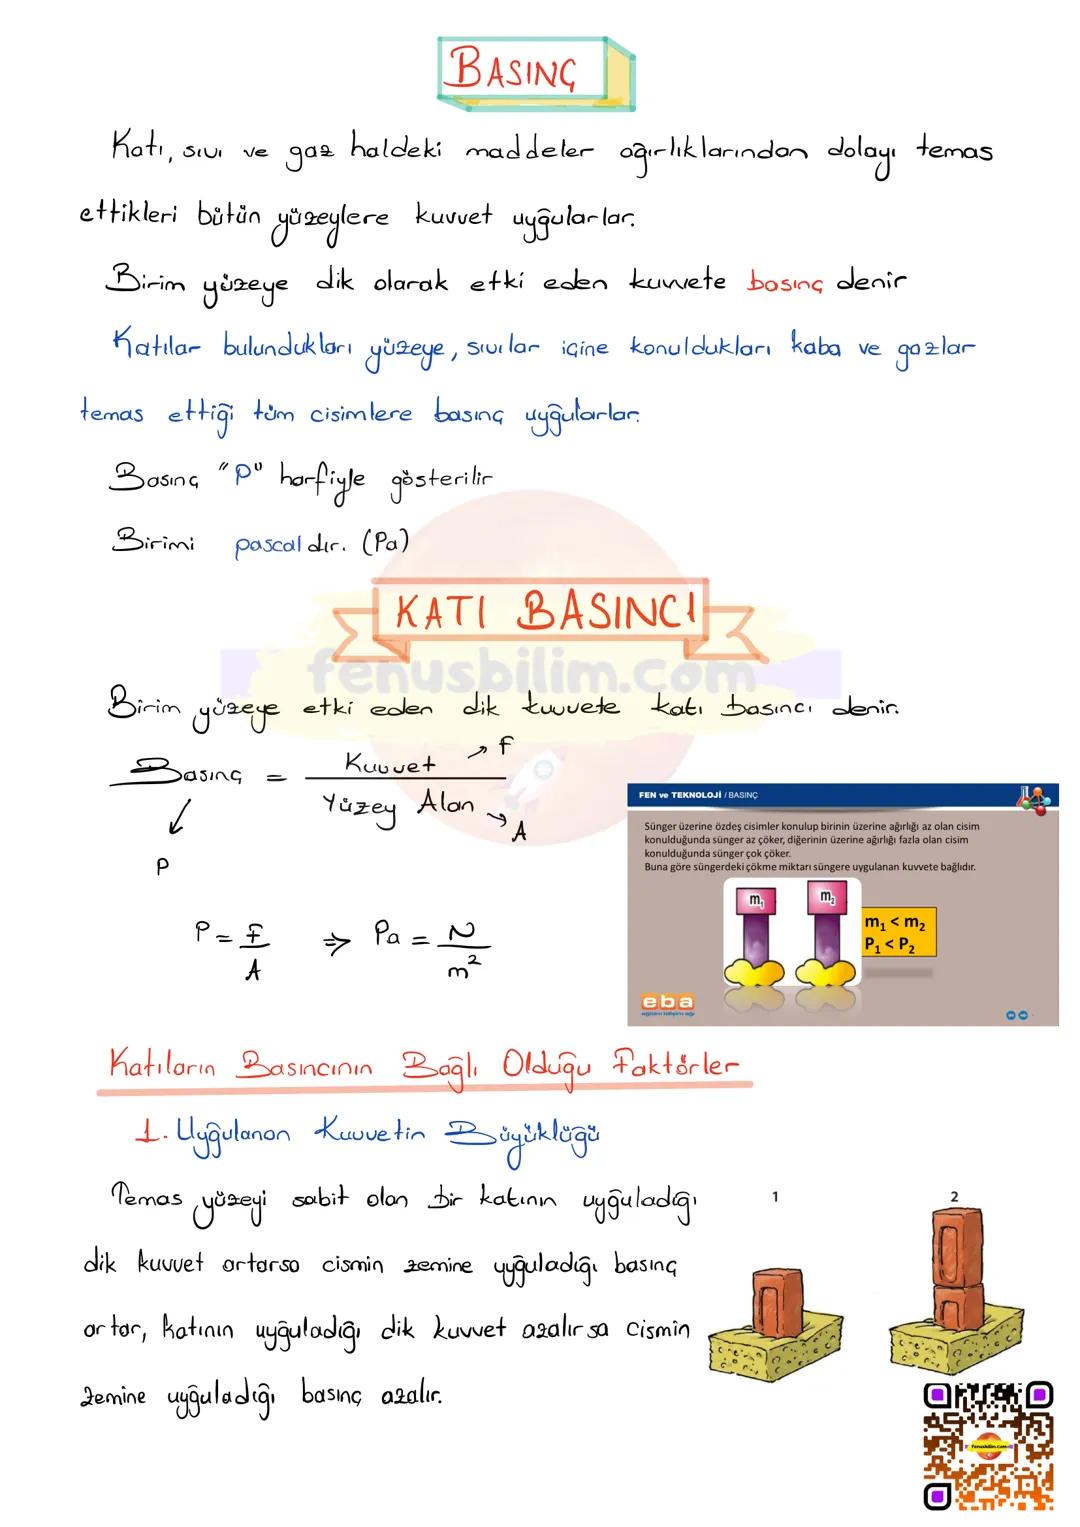 BASINÇ
Katı, sıvı ve gaz haldeki maddeler ağırlıklarından dolayı temas
ettikleri bütün yüzeylere kuvvet uygularlar.
Birim yüzeye dik olarak etki eden kuvvete basınç denir
Katılar bulundukları yüzeye, sıvılar içine konuldukları kaba ve gazlar
temas ettiği tüm cisimlere basınç uygularlar.
Basınç "P" harfiyle gösterilir
Birimi pascaldır. (Pa)
KATI BASINCI
fenusbilim.com
Birim yüzeye etki eden dik kuvvete katı basıncı denir.
Basınç = Kuvvet → F
Yüzey Alan → A
P
P = F / A ⇒ Pa = N / m²
FEN ve TEKNOLOJİ / BASINÇ
Sünger üzerine özdeş cisimler konulup birinin üzerine ağırlığı az olan cisim
konulduğunda sünger az çöker, diğerinin üzerine ağırlığı fazla olan cisim
konulduğunda sünger çok çöker.
Buna göre süngerdeki çökme miktarı süngere uygulanan kuvvete bağlıdır.
m₁ m₂
m₁ < m₂
P₁ < P₂
eba
eğitim bilişim ağı
Katıların Basıncının Bağlı Olduğu Faktörler
1. Uygulanan Kuvvetin Büyüklüğü
Temas yüzeyi sabit olan bir katının uyguladığı
dik kuvvet artarsa cismin zemine uyguladığı basınç
artar, katının uyguladığı dik kuvvet azalırsa cismin
zemine uyguladığı basınç azalır.
1 2
fenusbilim.com